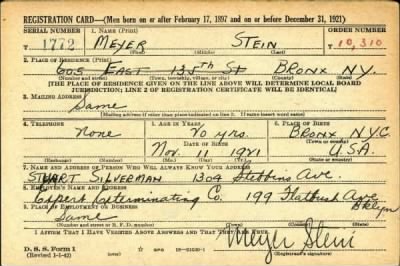 REGISTRATION CARD—(Men born on or after February 17, 1897 and on or before December 31, 1921)
SERIAL NUMBER 1. NAME (Print) ORDER NUMBER
1772 MEYER STEIN 10,310
(First) (Middle) (Last)
2. PLACE OF RESIDENCE (Print)
605 EAST 135th St BRONX N.Y.
(Number and street) (Town, township, village, or city) (County) (State)
[THE PLACE OF RESIDENCE GIVEN ON THE LINE ABOVE WILL DETERMINE LOCAL BOARD
JURISDICTION; LINE 2 OF REGISTRATION CERTIFICATE WILL BE IDENTICAL]
3. MAILING ADDRESS
Same
[Mailing address if other than place indicated on line 2. If same insert word same]
4. TELEPHONE 5. AGE IN YEARS 6. PLACE OF BIRTH
None 20 yrs. BRONX N.Y.C
DATE OF BIRTH (Town or county)
Nov. 11 1921 U.S.A.
(Exchange) (Number) (Mo.) (Day) (Yr.) (State or country)
7. NAME AND ADDRESS OF PERSON WHO WILL ALWAYS KNOW YOUR ADDRESS
STUART SILVERMAN 1304 Stebbins Ave.
8. EMPLOYER'S NAME AND ADDRESS
Expert Exterminating Co. 199 Flatbush Ave
9. PLACE OF EMPLOYMENT OR BUSINESS Bklyn
Same
(Number and street or R. F. D. number) (Town) (County) (State)
I AFFIRM THAT I HAVE VERIFIED ABOVE ANSWERS AND THAT THEY ARE TRUE.
D. S. S. Form 1 Meyer Stein
(Revised 1-1-42) (Registrant's signature)